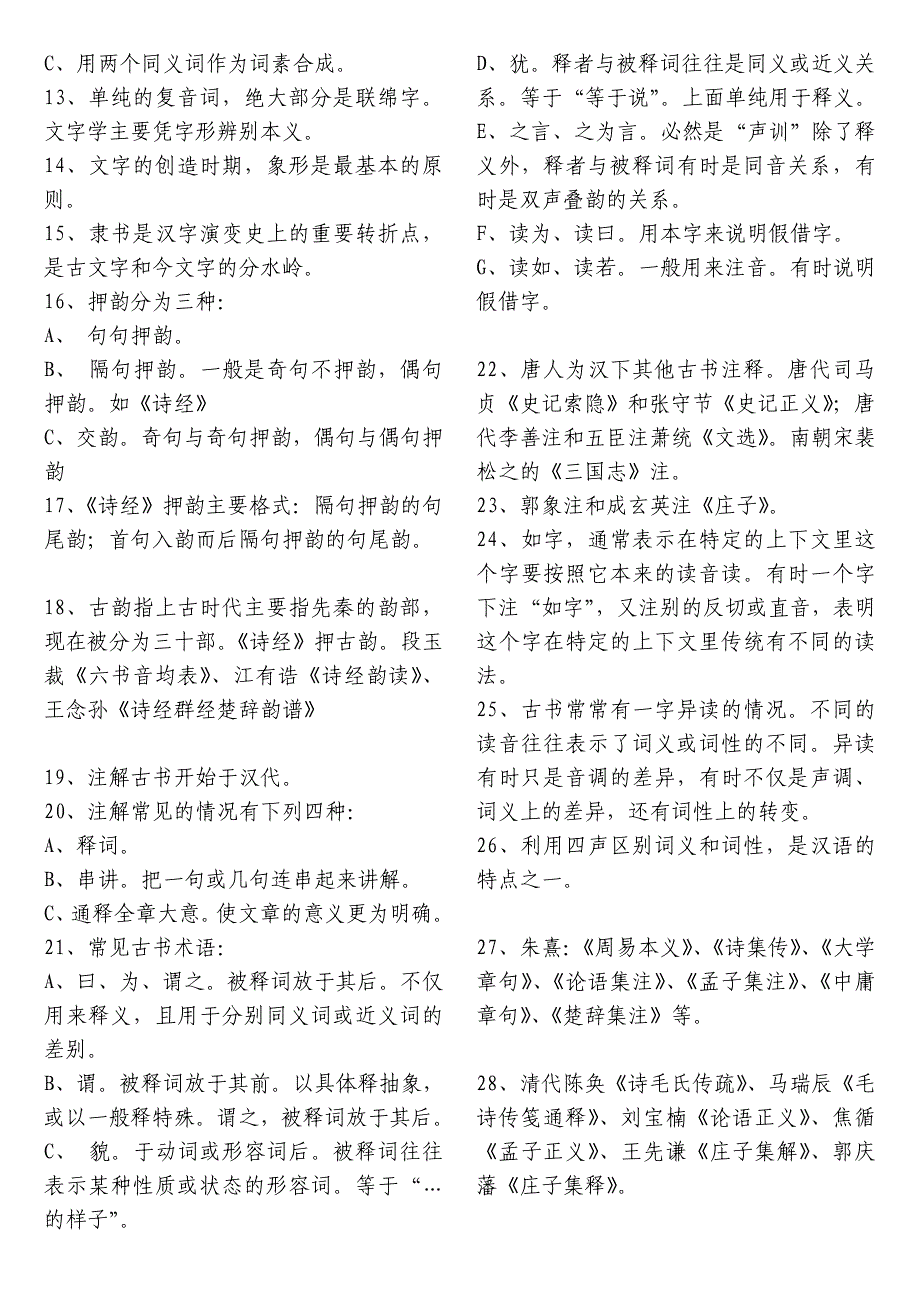 C、用两个同义词作为词素合成。
13、单纯的复音词，绝大部分是联绵字。
文字学主要凭字形辨别本义。
14、文字的创造时期，象形是最基本的原
则。
15、隶书是汉字演变史上的重要转折点，
是古文字和今文字的分水岭。
16、押韵分为三种：
A、 句句押韵。
B、 隔句押韵。一般是奇句不押韵，偶句
押韵。如《诗经》
C、交韵。奇句与奇句押韵，偶句与偶句押
韵
17、《诗经》押韵主要格式：隔句押韵的句
尾韵；首句入韵而后隔句押韵的句尾韵。
18、古韵指上古时代主要指先秦的韵部，
现在被分为三十部。《诗经》押古韵。段玉
裁《六书音均表》、江有诰《诗经韵读》、
王念孙《诗经群经楚辞韵谱》
19、注解古书开始于汉代。
20、注解常见的情况有下列四种：
A、释词。
B、串讲。把一句或几句连串起来讲解。
C、通释全章大意。使文章的意义更为明确。
21、常见古书术语：
A、曰、为、谓之。被释词放于其后。不仅
用来释义，且用于分别同义词或近义词的
差别。
B、谓。被释词放于其前。以具体释抽象，
或以一般释特殊。谓之，被释词放于其后。
C、 貌。于动词或形容词后。被释词往往
表示某种性质或状态的形容词。等于“…
的样子”。
D、犹。释者与被释词往往是同义或近义关
系。等于“等于说”。上面单纯用于释义。
E、之言、之为言。必然是“声训”除了释
义外，释者与被释词有时是同音关系，有
时是双声叠韵的关系。
F、读为、读曰。用本字来说明假借字。
G、读如、读若。一般用来注音。有时说明
假借字。
22、唐人为汉下其他古书注释。唐代司马
贞《史记索隐》和张守节《史记正义》；唐
代李善注和五臣注萧统《文选》。南朝宋裴
松之的《三国志》注。
23、郭象注和成玄英注《庄子》。
24、如字，通常表示在特定的上下文里这
个字要按照它本来的读音读。有时一个字
下注“如字”，又注别的反切或直音，表明
这个字在特定的上下文里传统有不同的读
法。
25、古书常常有一字异读的情况。不同的
读音往往表示了词义或词性的不同。异读
有时只是音调的差异，有时不仅是声调、
词义上的差异，还有词性上的转变。
26、利用四声区别词义和词性，是汉语的
特点之一。
27、朱熹：《周易本义》、《诗集传》、《大学
章句》、《论语集注》、《孟子集注》、《中庸
章句》、《楚辞集注》等。
28、清代陈奂《诗毛氏传疏》、马瑞辰《毛
诗传笺通释》、刘宝楠《论语正义》、焦循
《孟子正义》、王先谦《庄子集解》、郭庆
藩《庄子集释》。